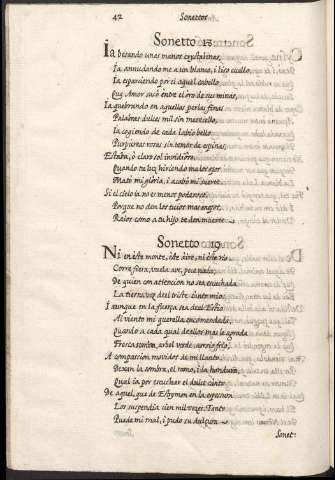 42
Sonettos
Sonetto
Ia besando unas manos cryslalinas,
Ia annudandome a un blanco, i liso cuello,
Ia esparciendo por el aquel cabello
Que Amor sacò entre el oro de sus minas,
Ia quebrando en aquellas perlas finas
Palabras dulces mil sin merecello,
Ia cogiendo de cada labio bello
Purpureas rosas sin temor de espinas;
Estaba, ò claro sol invidioso,
Quando tu luz hiriendo me los ojos
Matò mi gloria, i acabò mi suerte.
Si el cielo ia no es menos poderoso,
Porque no dan los tuios mas enojos,
Raios como a tu hijo te den muerte
Sonetto
Ni en este monte, este aire, ni este rio
Corre fiera, vuela ave, pece nada,
De quien con attencion no sea escuchada
La triste voz del triste llanto mio;
I aunque en la fuerça sea del Estio
Al viento mi querella encomendada,
Quando a cada qual de ellos mas le agrada
Fresca cueva, arbol verde, arroio frio,
A compassion movidos de mi llanto
Dexan la sombra, el ramo, i la hondura,
Qual ia por escuchar el dulce canto
De aquel, que de Estrymon en la espessura
Los suspendia cien mil veces. Tanto
Puede mi mal, i pudo su dulçura
Sonet: